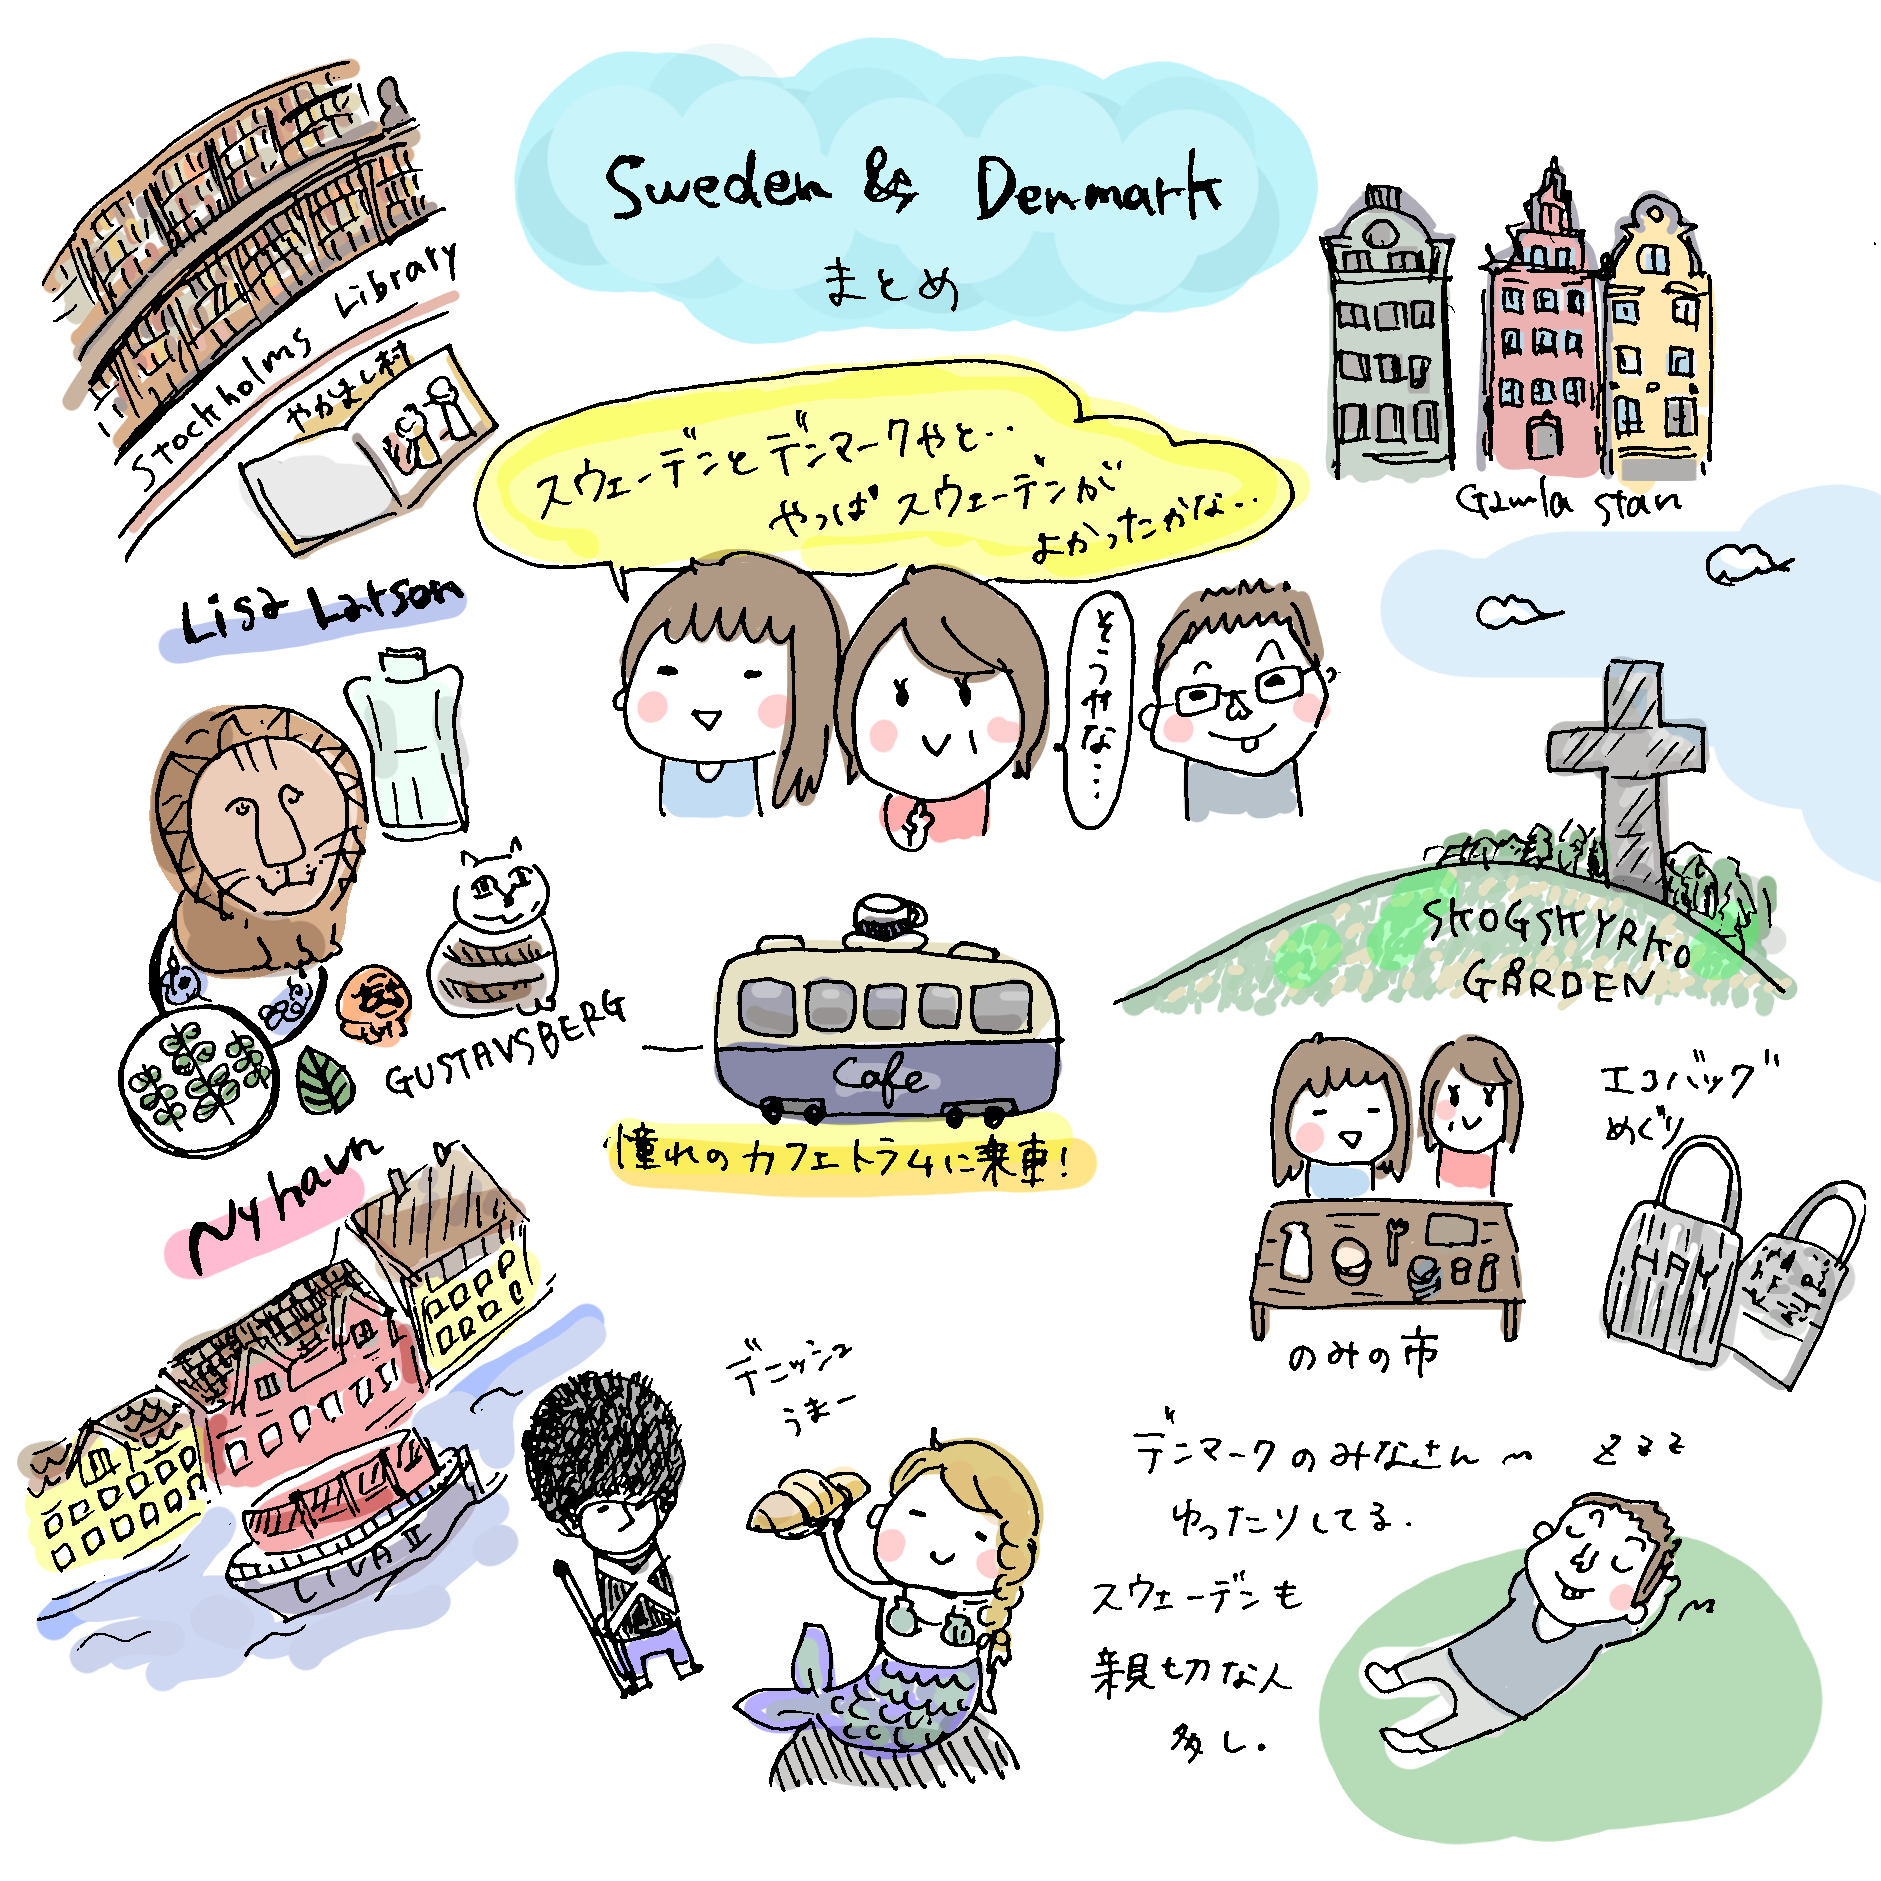 Sweden & Denmark
まとめ
Stockholms Library
やかまし村
スウェーデンとデンマークやと‥
やっぱスウェーデンが
よかったかな‥
そうやな‥‥
Gamla stan
Lisa Larson
GUSTAVSBERG
Cafe
憧れのカフェトラムに乗車!
SKOGSKYRKO
GÅRDEN
エコバッグ
めぐり
HAY
のみの市
Nyhavn
LIVA II
デニッシュ
うまー
デンマークのみなさん〜
ゆったりしてる.
zzz
スウェーデンも
親切な人
多し.